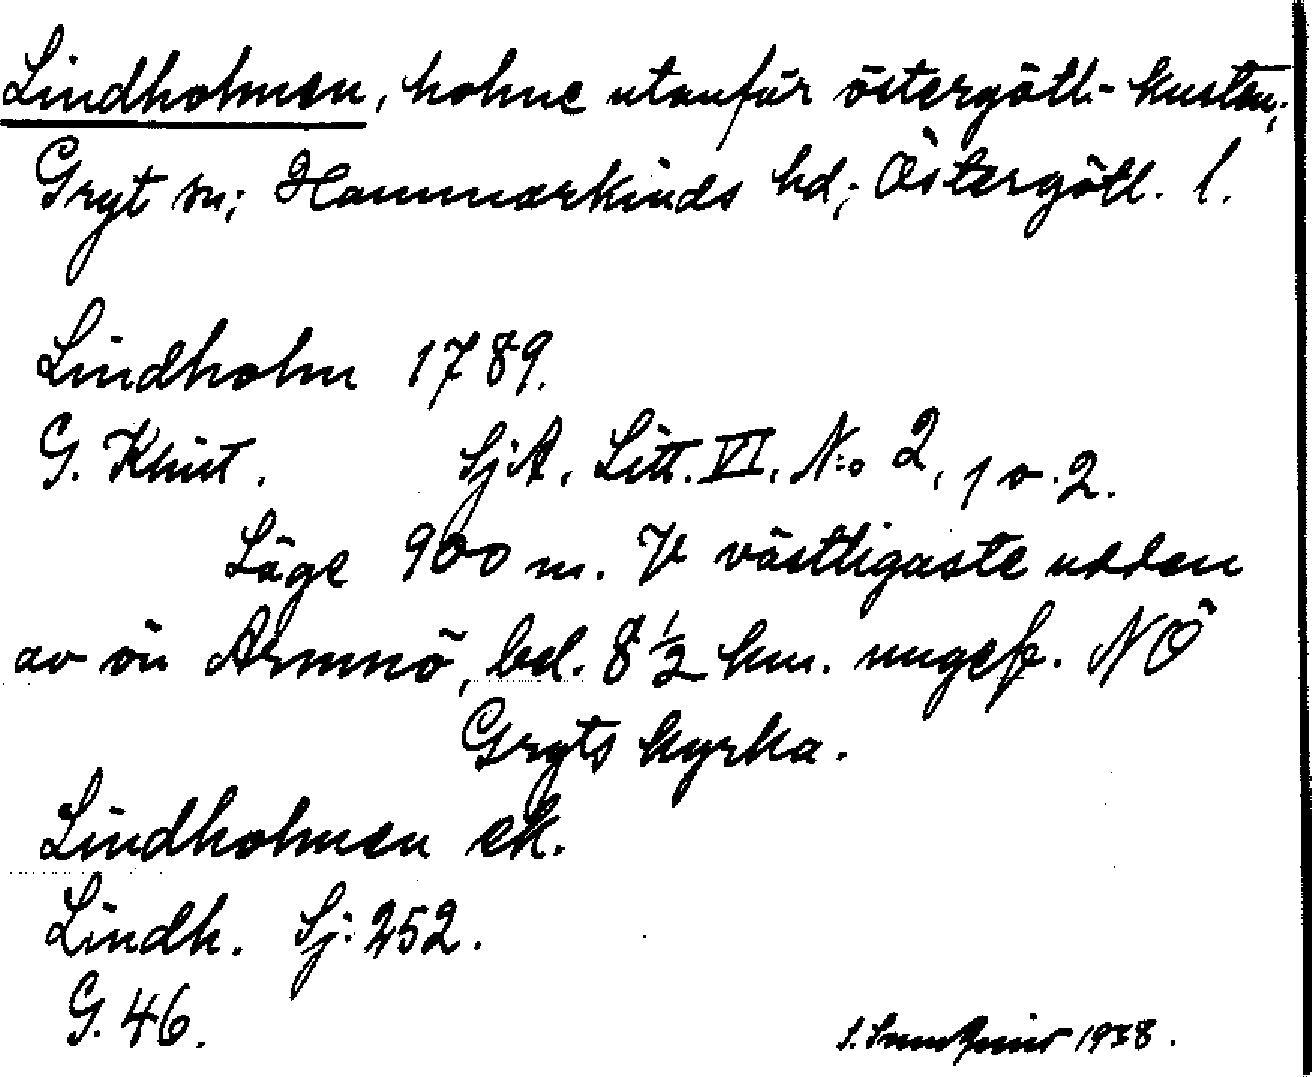 Lindholmen, holme utanför östergötl. kusten;
Gryt sn; Hammarkinds hd; Östergötl. l.
Lindholm 1789.
G. Klint. SjA. Litt. VI. N:o 2, 1 o. 2.
Läge 900 m. V västligaste udden
av ön Armnö, bel. 8 ½ km. ungef. NÖ
Gryts kyrka.
Lindholmen ek.
Lindh. Sj: 252.
G. 46.
1978.